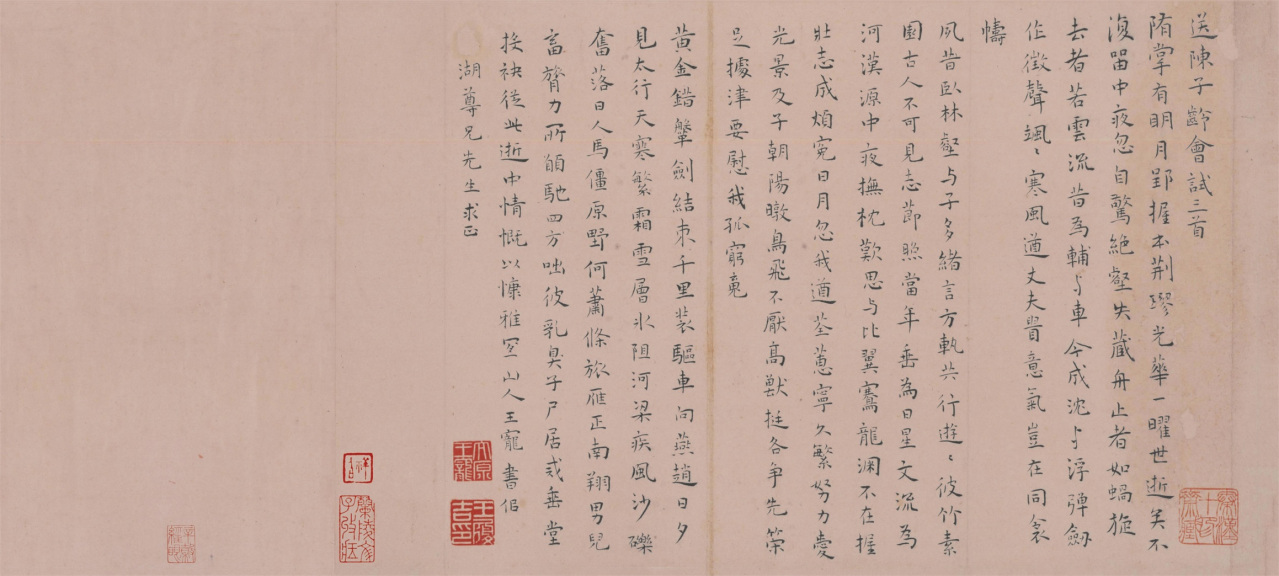 送陳子齡會試三首
隋掌有明月郢握本荆璆光華一曜世逝矣不
復留中夜忽自驚絶壑失藏舟止者如蝸旋
去者若雲流昔為輔与車今成沈与浮彈劒
作徵聲颯〻寒風遒丈夫貴意氣豈在同衾
幬
夙昔臥林壑与子多緒言方執共行遊〻彼竹素
園古人不可見志節照當年垂為日星文流為
河漢源中夜撫枕歎思与比翼騫龍淵不在握
壯志成煩寃日月忽我遒荃蕙寧久繁努力愛
光景及子朝陽暾鳥飛不厭高獸挺各争先策
足據津要慰我孤窮
黄金錯鞶劍結束千里裝驅車向燕趙日夕
見太行天寒繁霜雪層氷阻河梁疾風沙礫
奮落日人馬僵原野何蕭條旅雁正南翔男兒
畜膂力所願馳四方咄彼乳臭子尸居戒垂堂
掞袂從此逝中情慨以慷雅宜山人王寵書似
湖尊兄先生求正
王履
吉印